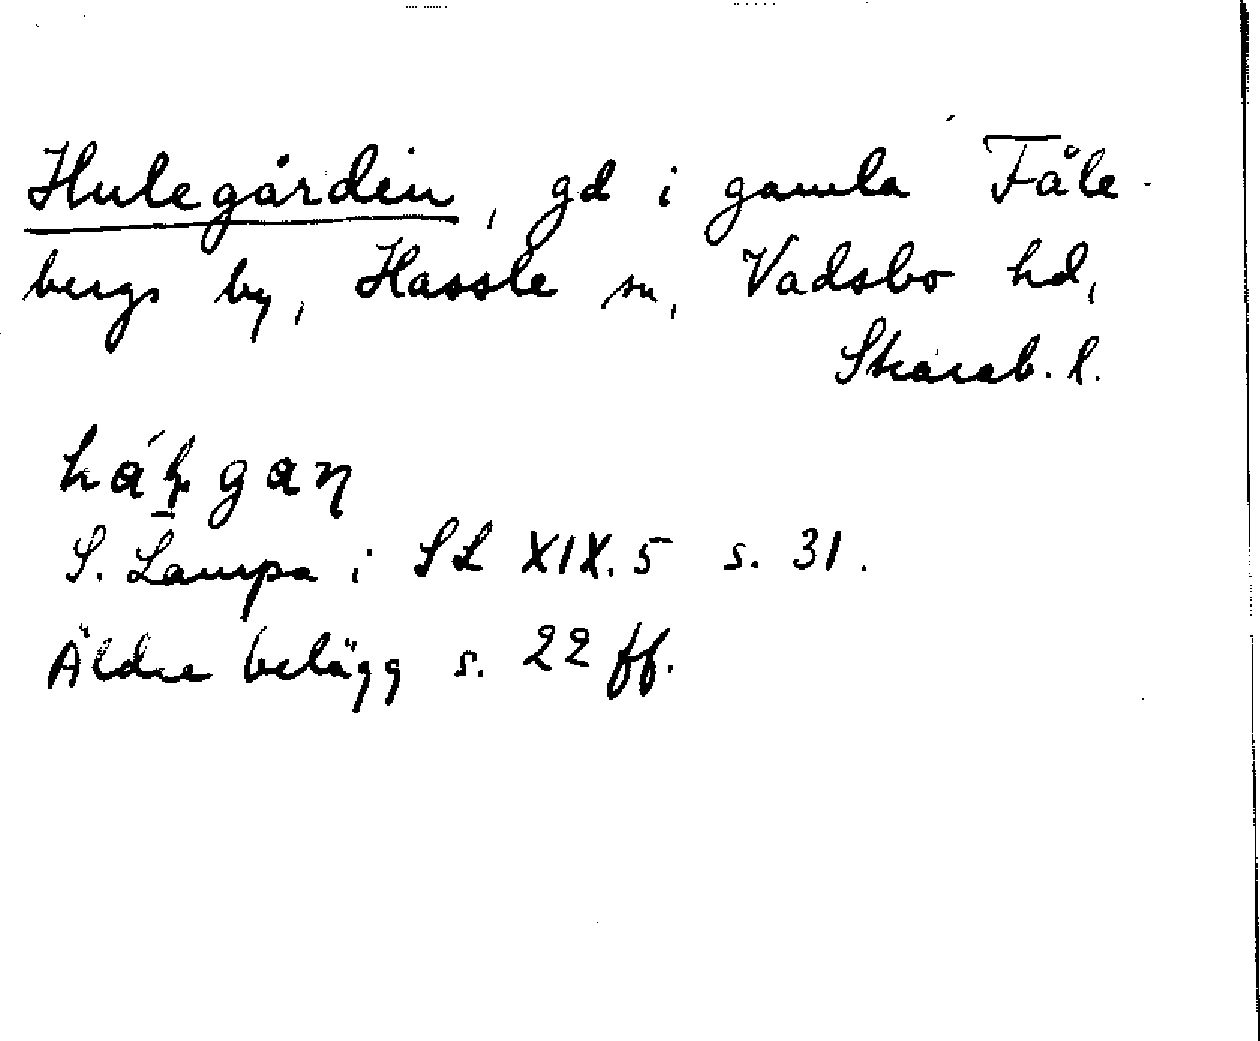 Hulegården, gd i gamla Fåle-
bergs by, Hassle sn, Vadsbo hd,
Skarab. l.
S. Lampa i SL XIX. 5 s. 31.
Äldre belägg s. 22 ff.